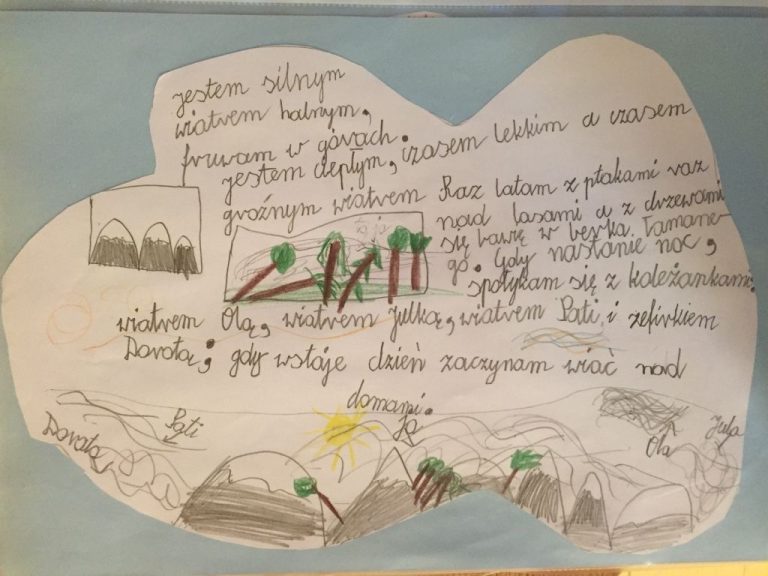 jestem silnym
wiatrem halnym,
fruwam w górach.
jestem ciepłym, czasem lekkim a czasem
groźnym wiatrem Raz latam z ptakami raz
nad lasami a z drzewami
się bawię w berka łamane
go. Gdy nastanie noc,
spotykam się z koleżankami:
wiatrem Olą, wiatrem Julką, wiatrem Pati i zefirkiem
Dorotą; gdy wstaje dzień zaczynam wiać nad
domami.
Dorota
Pati
Ja
Ola
Jula